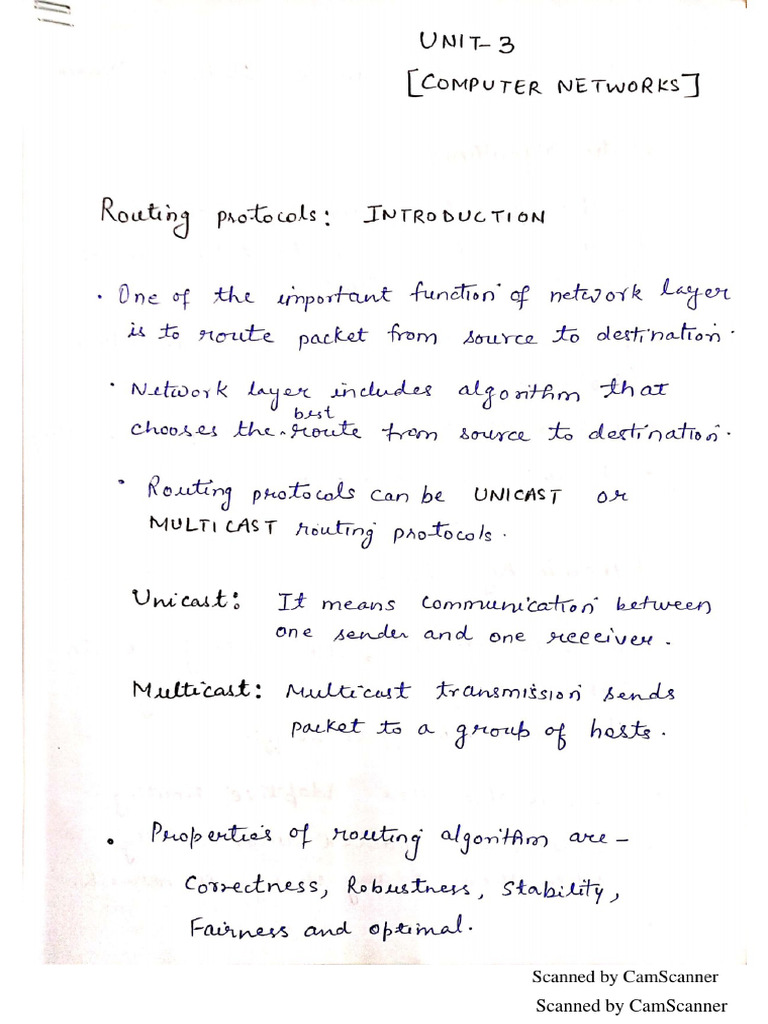 UNIT-3
[COMPUTER NETWORKS]
Routing protocols: INTRODUCTION
· One of the important function of network layer
is to route packet from source to destination.
· Network layer includes algorithm that
best
chooses the route from source to destination.
· Routing protocols can be UNICAST or
MULTICAST routing protocols.
Unicast: It means communication between
one sender and one receiver.
Multicast: Multicast transmission sends
packet to a group of hosts.
· Properties of routing algorithm are -
Correctness, Robustness, Stability,
Fairness and optimal.
Scanned by CamScanner
Scanned by CamScanner